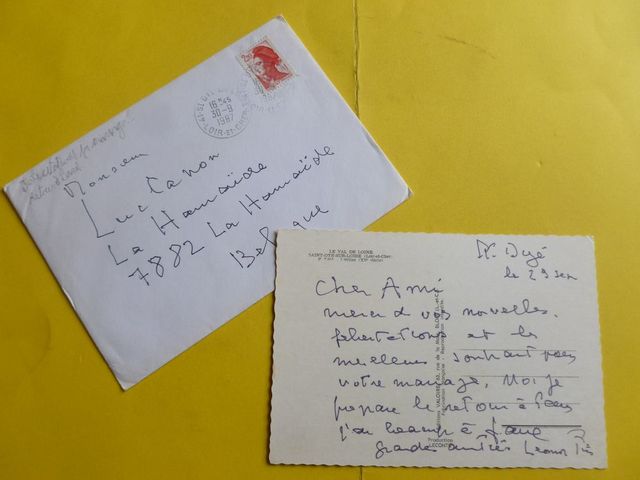 Monsieur
Luc Canon
La Hamaïde
7882 La Hamaïde
Belgique
16 H45
30-9
1987
LOIR-ET-CHER
LE VAL DE LOIRE
SAINT-DYÉ-SUR-LOIRE (Loir-et-Cher)
St Dyé
le 29 sep
Cher Ami
merci de vos nouvelles.
félicitations et les
meilleurs souhaits pour
votre mariage. Moi je
prépare le retour à Paris
j'ai beaucoup à faire
grandes amitiés Leonor Fini
Production
LECONTE